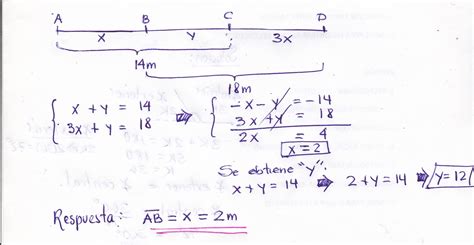 A B C D
x y 3x
14m
18m
x + y = 14 ⇒ -x - y = -14
3x + y = 18 3x + y = 18
2x = 4
x = 2
Se obtiene "y":
x + y = 14 ⇒ 2 + y = 14 ⇒ y = 12
Respuesta: AB = x = 2m